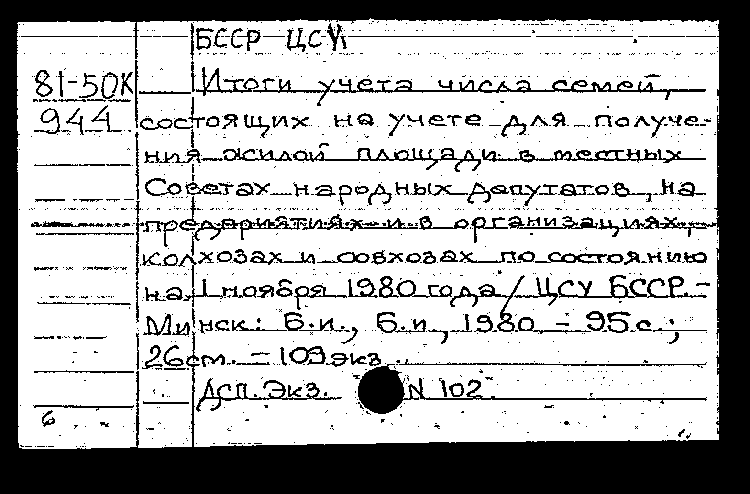 БССР ЦСУ
81-50К Итоги учета числа семей,
944 состоящих на учете для получе-
ния жилой площади в местных
Советах народных депутатов, на
предприятиях и в организациях,
колхозах и совхозах по состоянию
на 1 ноября 1980 года / ЦСУ БССР. -
Минск: Б.и., Б.и., 1980. - 95 с.;
26 см. - 109 экз.
Дсп. Экз. N 102.
6